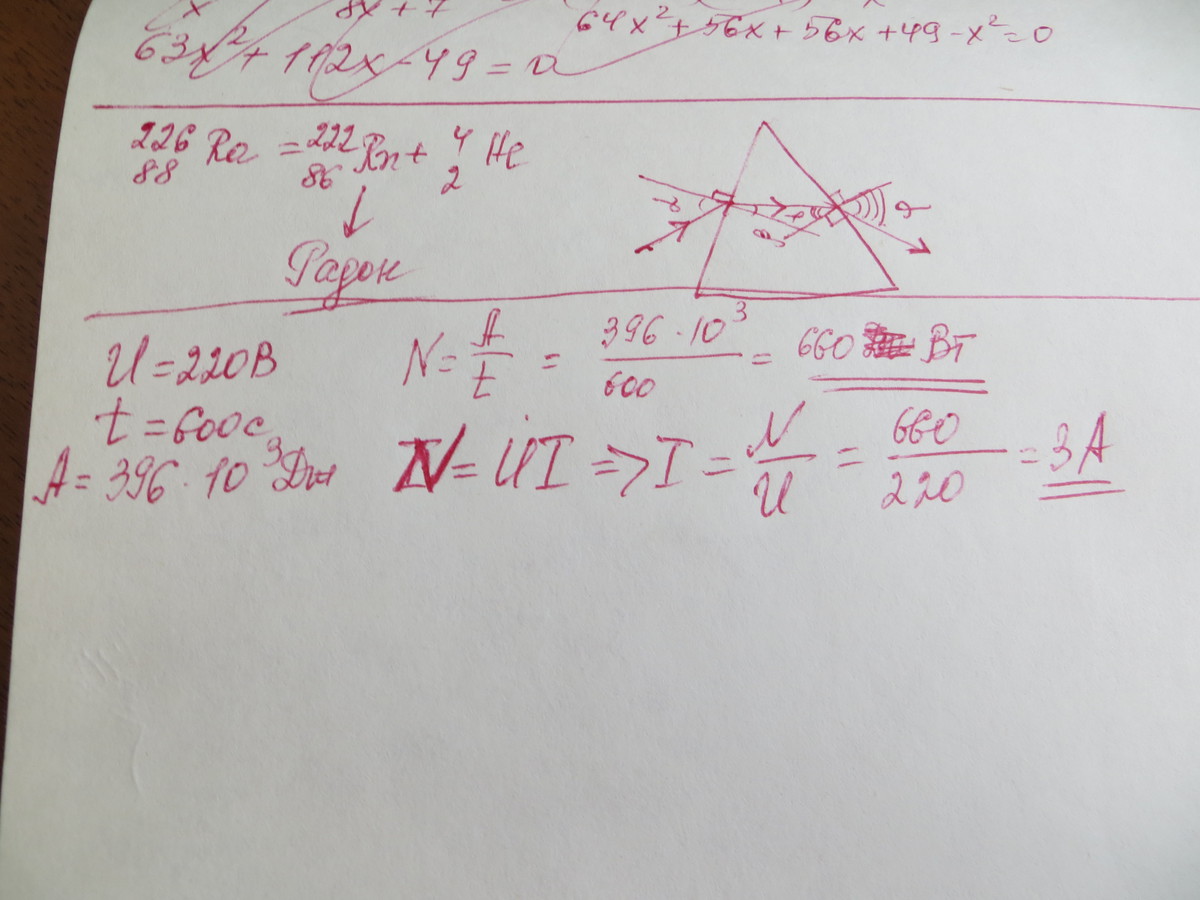 x 8x+7
64x²+56x+56x+49-x²=0
63x²+112x-49=0
²²⁶₈₈Ra = ²²²₈₆Rn + ⁴₂He
↓
Радон
U=220В
t=600с
A=396·10³Дж
N=A/t = 396·10³/600 = 660 Вт
N=UI => I = N/U = 660/220 = 3А